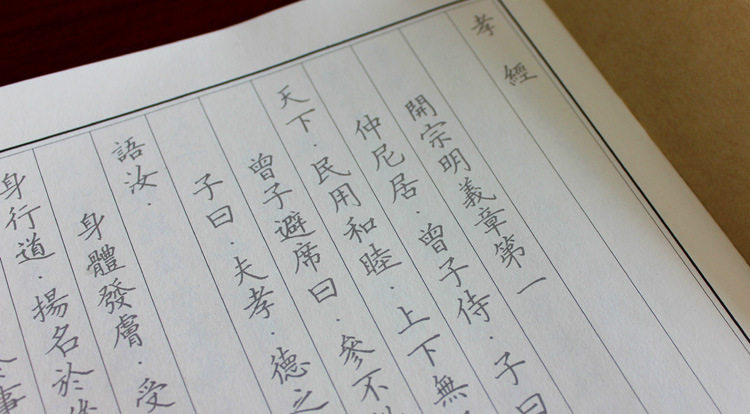 孝經
開宗明義章第一
仲尼居．曾子侍．子曰
天下．民用和睦．上下無
曾子避席曰．參不
子曰．夫孝．德之
語汝．
身體發膚．受
身行道．揚名於